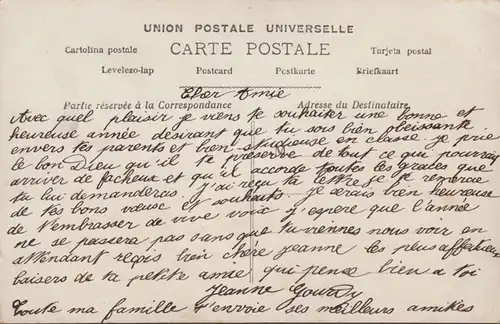 UNION POSTALE UNIVERSELLE
Cartolina postale CARTE POSTALE Tarjeta postal
Levelezo-lap Postcard Postkarte Briefkaart
Cher Amie
Partie réservée à la Correspondance Adresse du Destinataire
Avec quel plaisir je viens te souhaiter une bonne et
heureuse année désirant que tu sois bien obeissante
envers tes parents et bien studieuse en classe je prie
le bon Dieu qu'il te préserve de tout ce que pourrais
arriver de facheux et qu'il accorde toutes les graces que
tu lui demanderas. J'ai reçu ta lettre je te remercie
de tes bons vœux et souhaits. je serais bien heureuse
de t'embrasser de vive voix j'espere que l'année
ne se passera pas sans que tu viennes nous voir en
attendant reçois bien chere jeanne les plus affectueux
baisers de ta petite amie qui pense bien a toi
Jeanne
toute ma famille t'envoie ses meilleurs amities